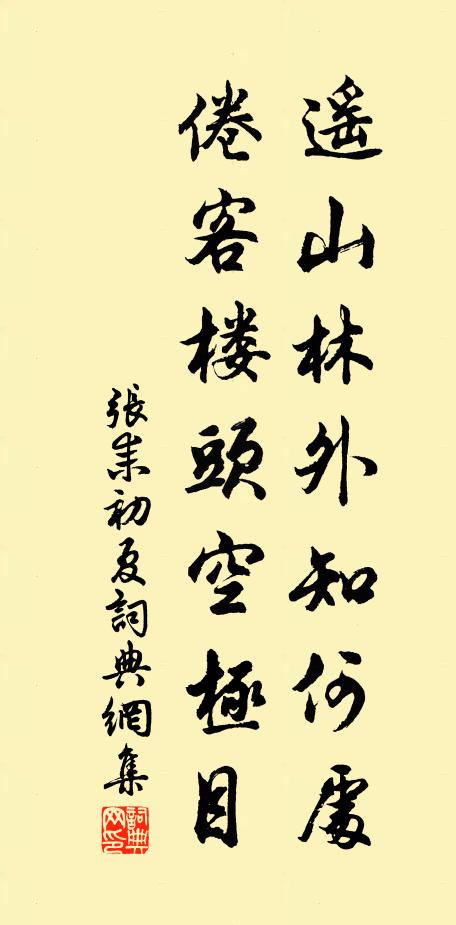 遥山林外知何處
倦客楼頭空極目
張耒初夏詞典網集
詞典網印